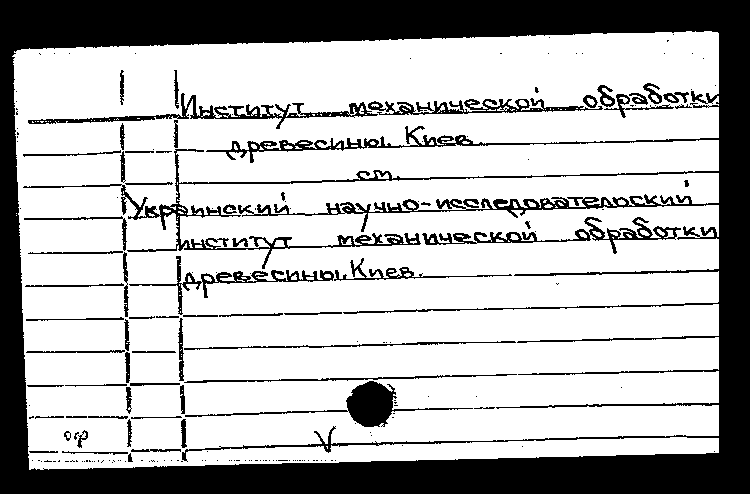 Институт механической обработки
древесины. Киев.
см.
Украинский научно-исследовательский
институт механической обработки
древесины. Киев.
оф
V